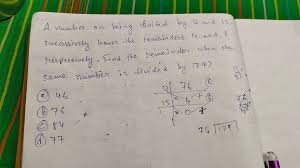 A number on being divided by 10 and 15
sucessively leaves the remainders 4 and 8
respectively. Find the remainder when the
same number is divided by 177?
(a) 46
(b) 76
(c) 84
(d) 77
76
76 177